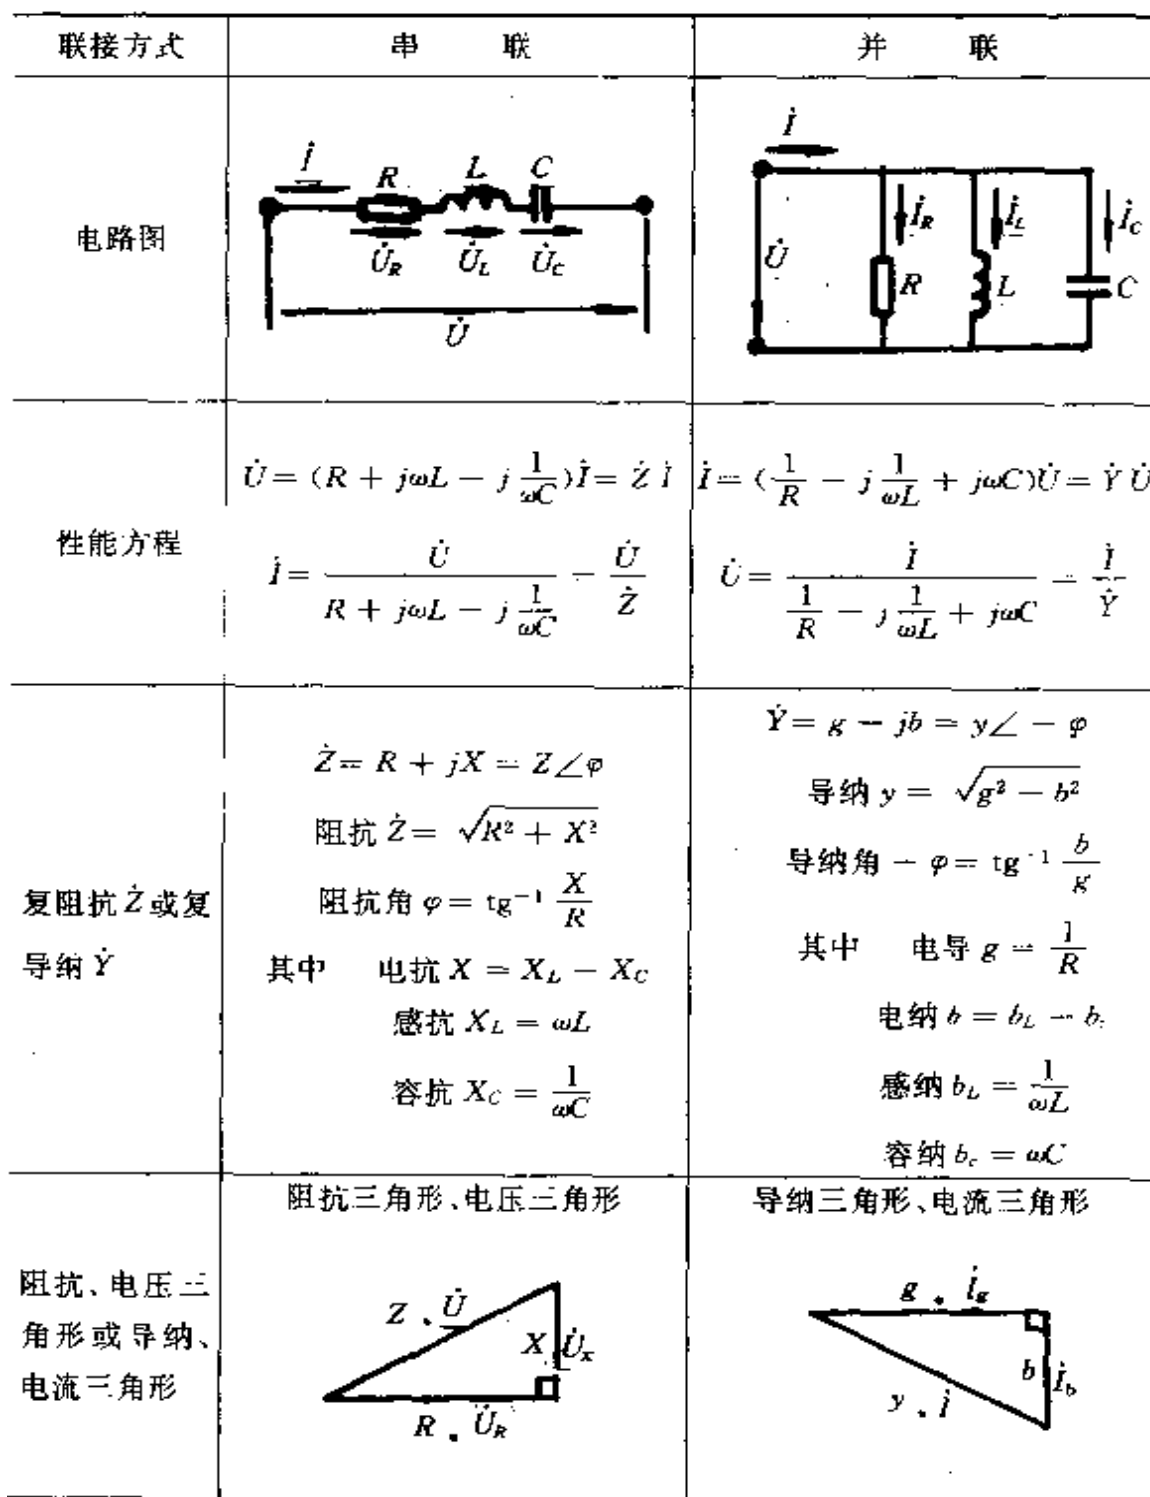 联接方式 串 联 并 联
电路图
İ R L C
U̇_R U̇_L U̇_C
U̇
İ
İ_R İ_L İ_C
U̇ R L C
性能方程
U̇ = (R + jωL − j 1/ωC)İ = Ż İ
İ = U̇/(R + jωL − j 1/ωC) = U̇/Ż
İ = (1/R − j 1/ωL + jωC)U̇ = Ẏ U̇
U̇ = İ/(1/R − j 1/ωL + jωC) = İ/Ẏ
复阻抗 Ż 或复
导纳 Ẏ
Ż = R + jX = Z∠φ
阻抗 Ż = √(R² + X²)
阻抗角 φ = tg⁻¹ X/R
其中 电抗 X = X_L − X_C
感抗 X_L = ωL
容抗 X_C = 1/ωC
Ẏ = g − jb = y∠ − φ
导纳 y = √(g² − b²)
导纳角 − φ = tg⁻¹ b/g
其中 电导 g = 1/R
电纳 b = b_L − b_c
感纳 b_L = 1/ωL
容纳 b_c = ωC
阻抗、电压三
角形或导纳、
电流三角形
阻抗三角形、电压三角形
Z . U̇
X U̇_x
R . U̇_R
导纳三角形、电流三角形
g . İ_g
b İ_b
y . İ